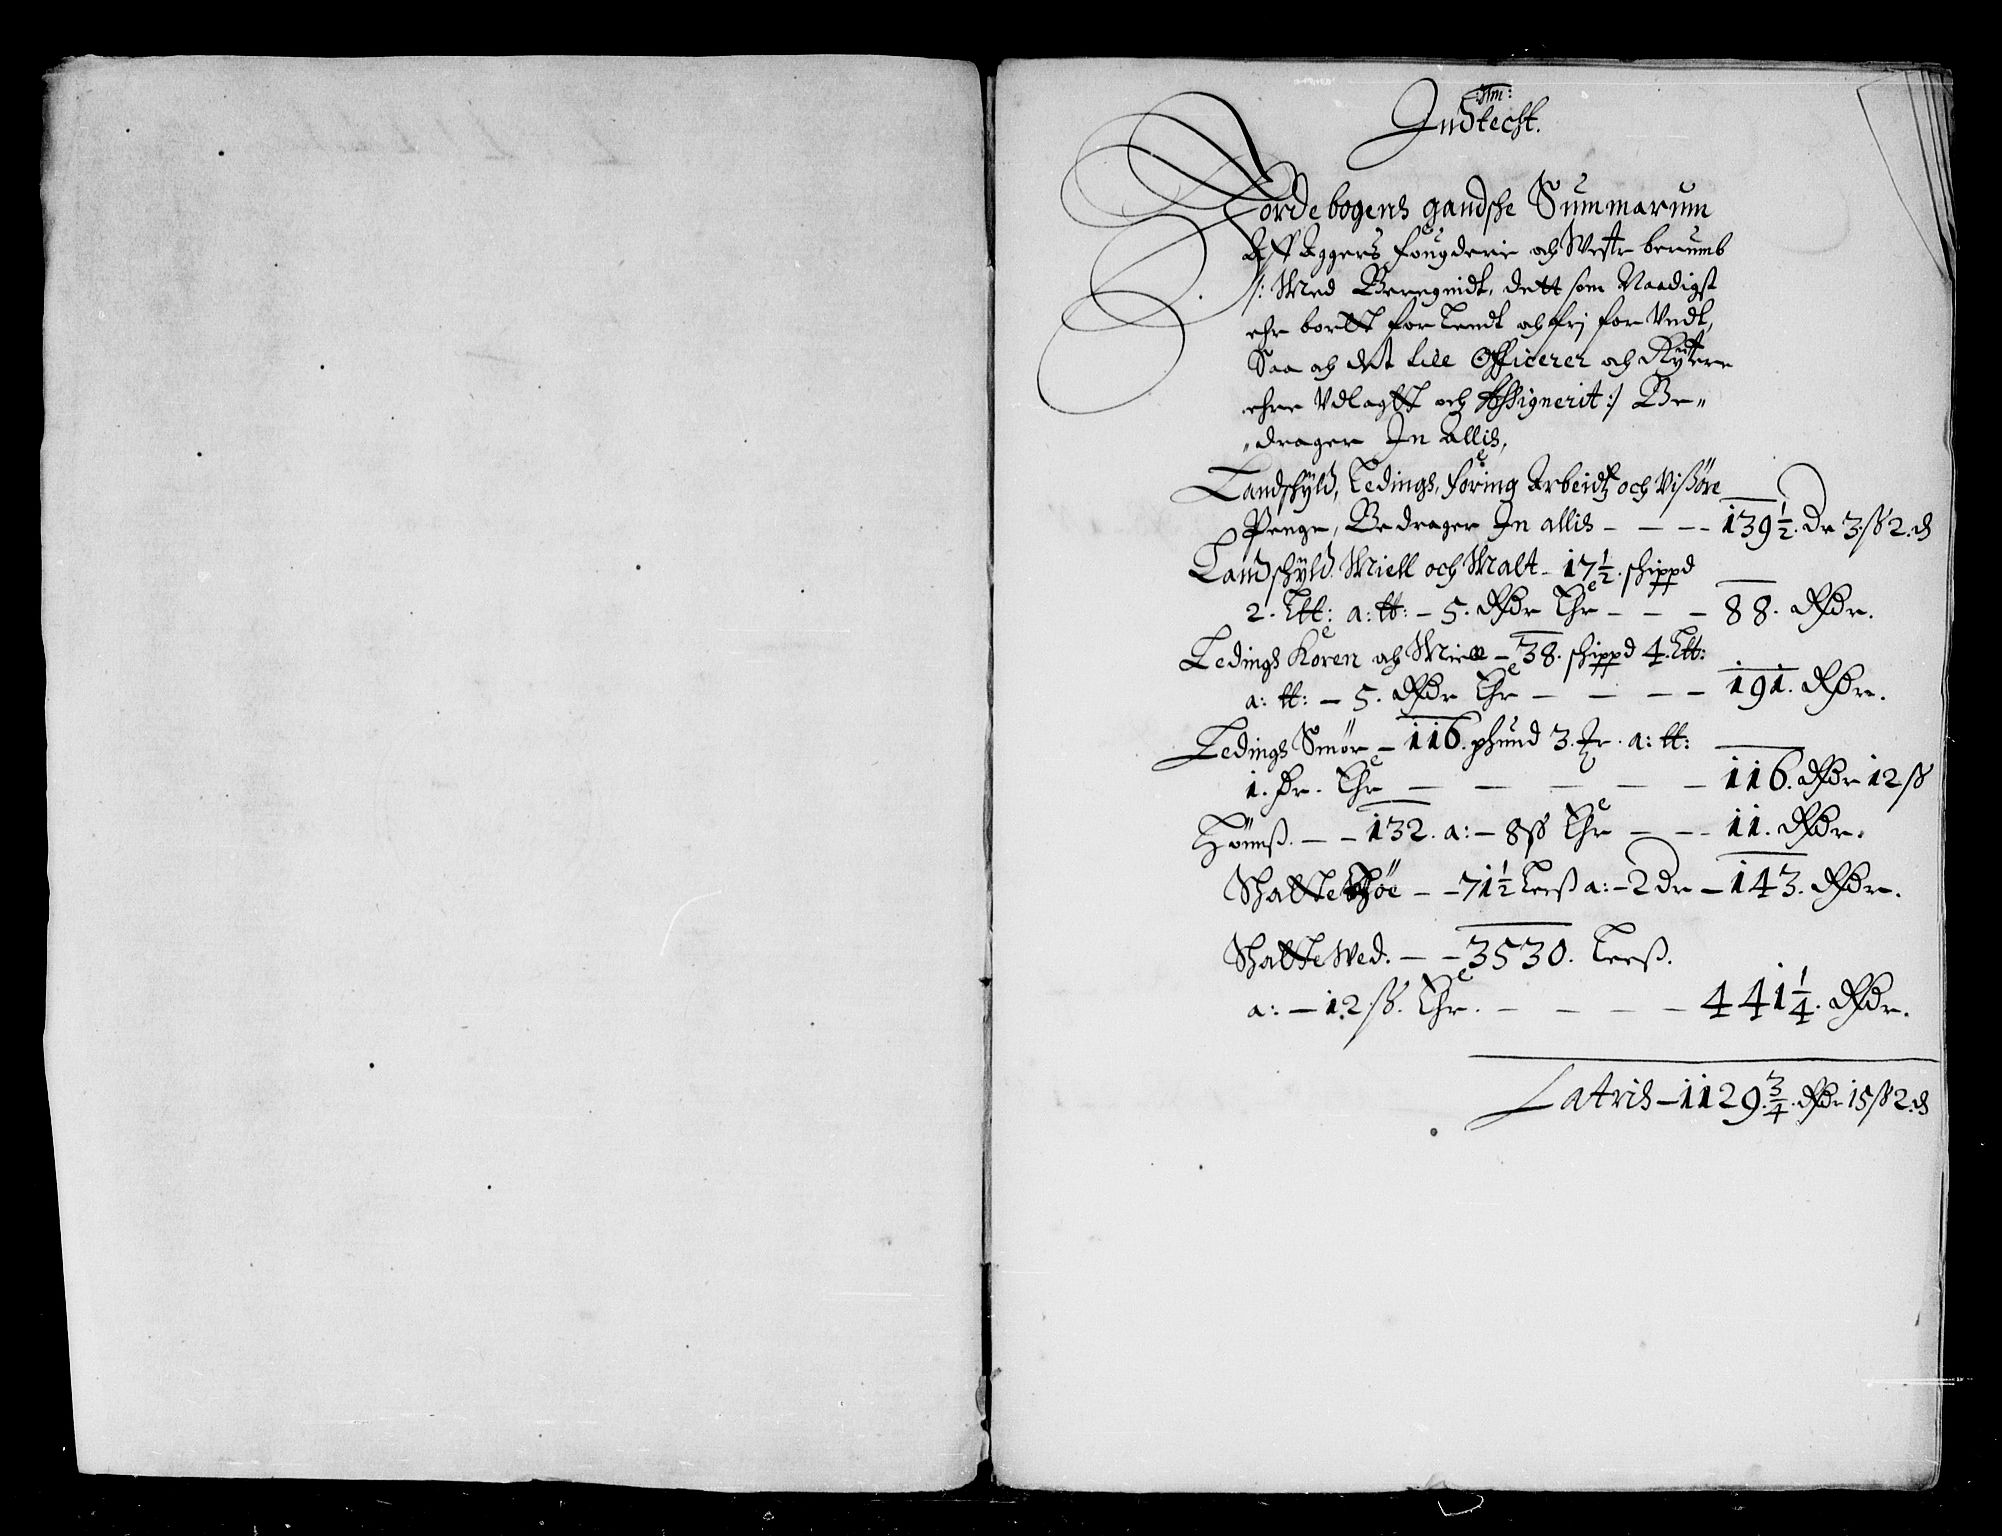 Indtecht.
Jordebogens gandsche Summarum
Aff Aggers fougderie och Westre berumb
/: Med Beregnidt, dett som Naadigst
ehr bortt forLendt och frj for Undt,
Saa och det lille Officerer och Rÿtere
ehre Udlagtt och Assignerit :/ Be„
„drager In Allis,
Landschÿld, Ledings, foring Arbeidtz och Vißöre
Penge, Bedrager In allis – – – 139½. dr 3. ß 2. ₰
Landschÿld Miell och Malt – 17½. schippd
2. Ltt: a: tt: – 5. Rdr Thr – – – 88. Rdr.
Ledings Koren och Miell – 38. schippd 4. Ltt:
a: tt: – 5. Rdr Thr – – – – 191. Rdr.
Ledings Smör – 116. phund 3. Fr. a: tt:
1. dr. Thr – – – – – 116. Rdr 12 ß
Hönnß. – – 132. a: – 8 ß Thr – – – 11. Rdr.
Schatte Höe – – 71½ Leeß a: – 2 dr – 143. Rdr.
Schatte Wed. – – 3530. Leeß.
a: – 12 ß. Thr. – – – – 441¼. Rdr.
Latris – 1129¾. Rdr 15 ß 2. ₰